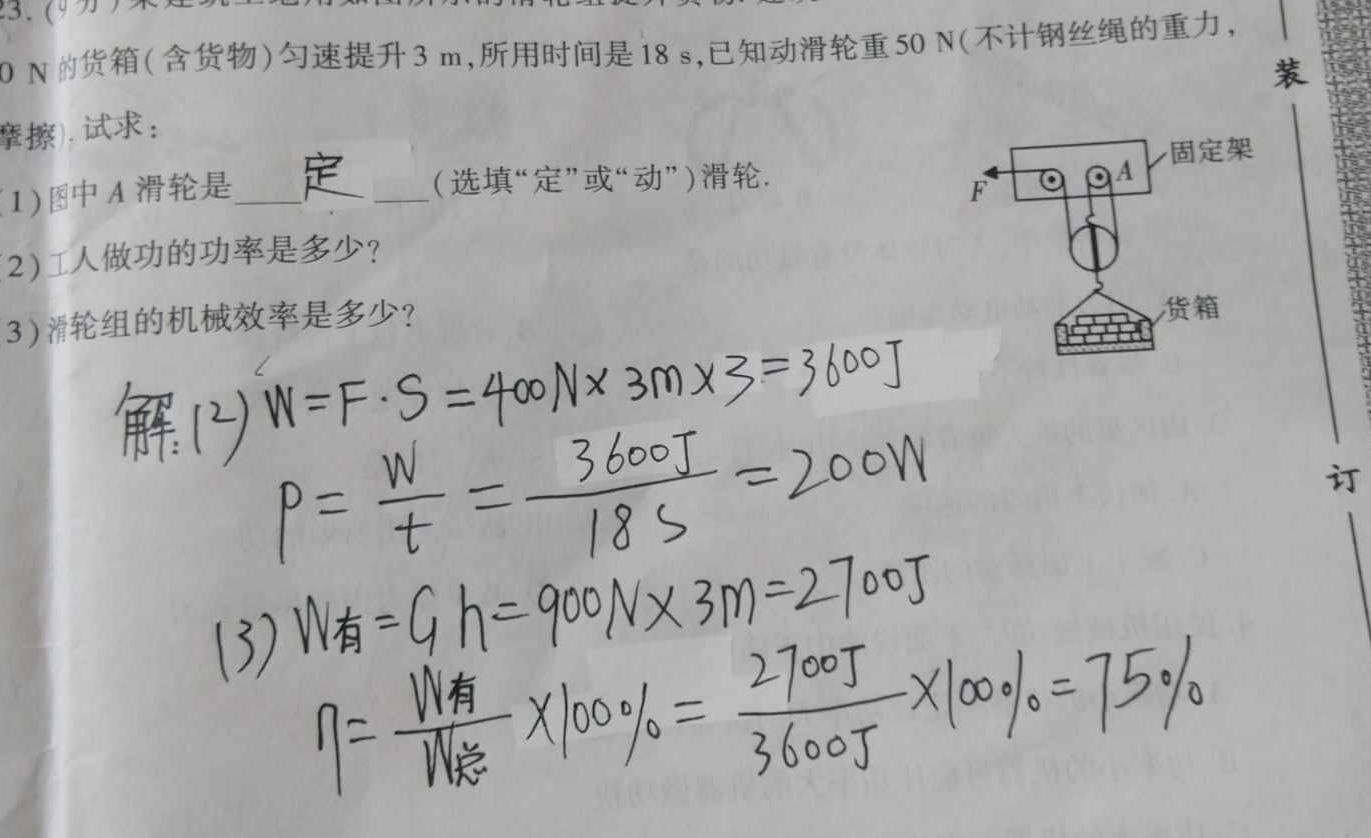 23. (9分)
0 N的货箱(含货物)匀速提升3 m,所用时间是18 s,已知动滑轮重50 N(不计钢丝绳的重力,
摩擦).试求:
(1)图中A滑轮是 定 (选填“定”或“动”)滑轮.
(2)工人做功的功率是多少?
(3)滑轮组的机械效率是多少?
F
A
固定架
货箱
解:(2) W=F·S=400N×3m×3=3600J
P=W/t=3600J/18S=200W
(3) W有=Gh=900N×3m=2700J
η=W有/W总×100%=2700J/3600J×100%=75%
装
订